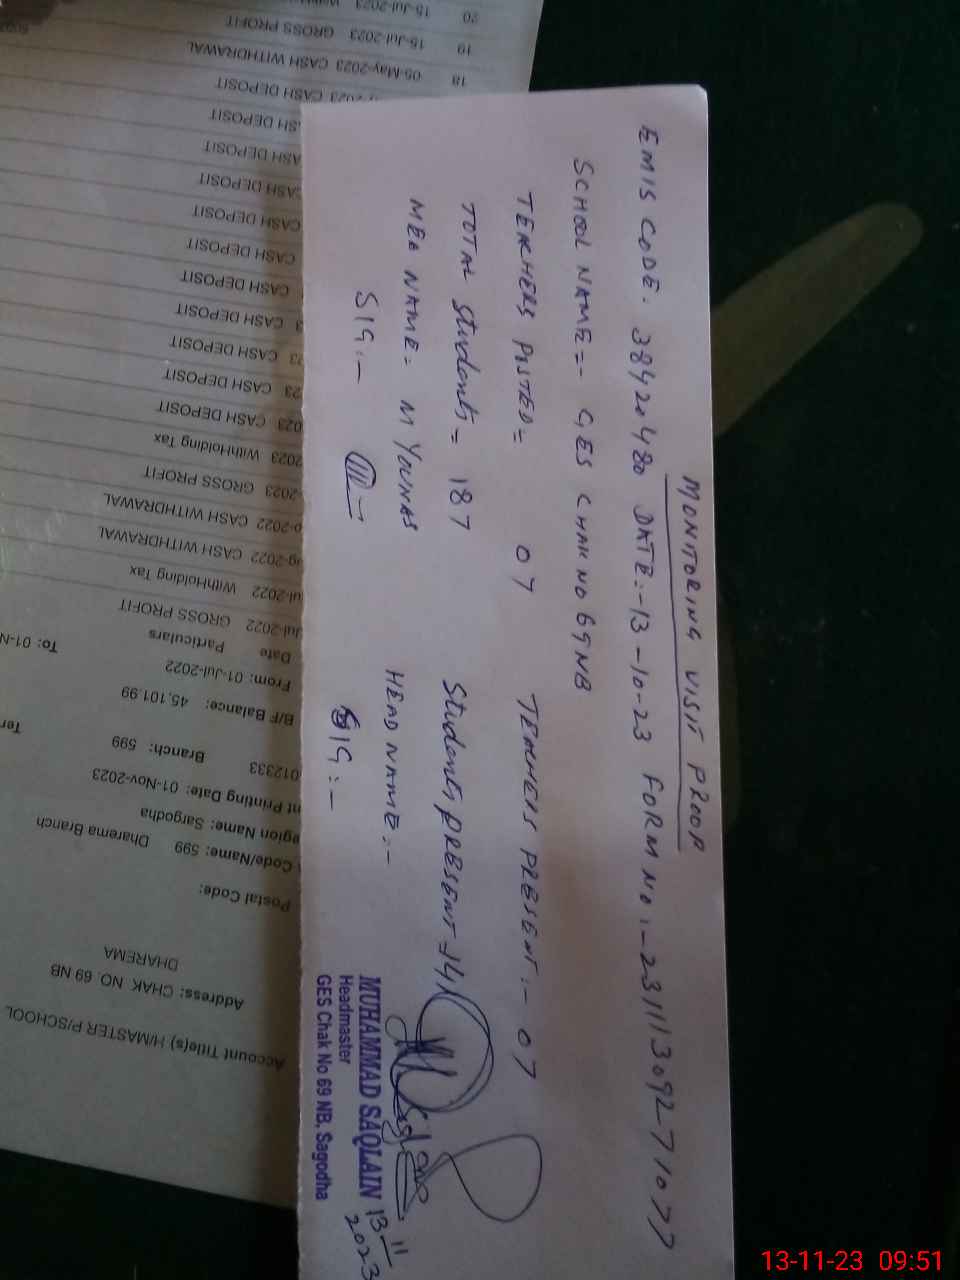 MONITORING VISIT PROOF
EMIS CODE. 38420480 DATE:-13-10-23 FORM NO:-23111309271077
SCHOOL NAME=- GES CHAK NO 69NB
TEACHERS POSTED= 07 TEACHEIS PRESENT:- 07
TOTAL Students= 187 Students PRESENT
MEA NAME= M YOUNAS HEAD NAME:-
SIG:- SIG:-
MUHAMMAD SAQLAIN
Headmaster
GES Chak No 69 NB, Sagodha
13-11
2023
Account Title(s) H/MASTER P/SCHOOL
Address: CHAK NO. 69 NB
DHAREMA
Postal Code:
Code/Name: 599 Dharema Branch
Region Name: Sargodha
Printing Date: 01-Nov-2023
012333 Branch: 599
B/F Balance: 45,101.99
From: 01-Jul-2022 To: 01-N
Date Particulars
Jul-2022 GROSS PROFIT
Jul-2022 WithHolding Tax
2022 CASH WITHDRAWAL
2022 CASH WITHDRAWAL
2023 GROSS PROFIT
2023 WithHolding Tax
023 CASH DEPOSIT
23 CASH DEPOSIT
23 CASH DEPOSIT
3 CASH DEPOSIT
CASH DEPOSIT
CASH DEPOSIT
CASH DEPOSIT
CASH DEPOSIT
ASH DEPOSIT
ASH DEPOSIT
2023 CASH DEPOSIT
18 05-May-2023 CASH WITHDRAWAL
19 15-Jul-2023 GROSS PROFIT
20 15-Jul-2023
13-11-23 09:51